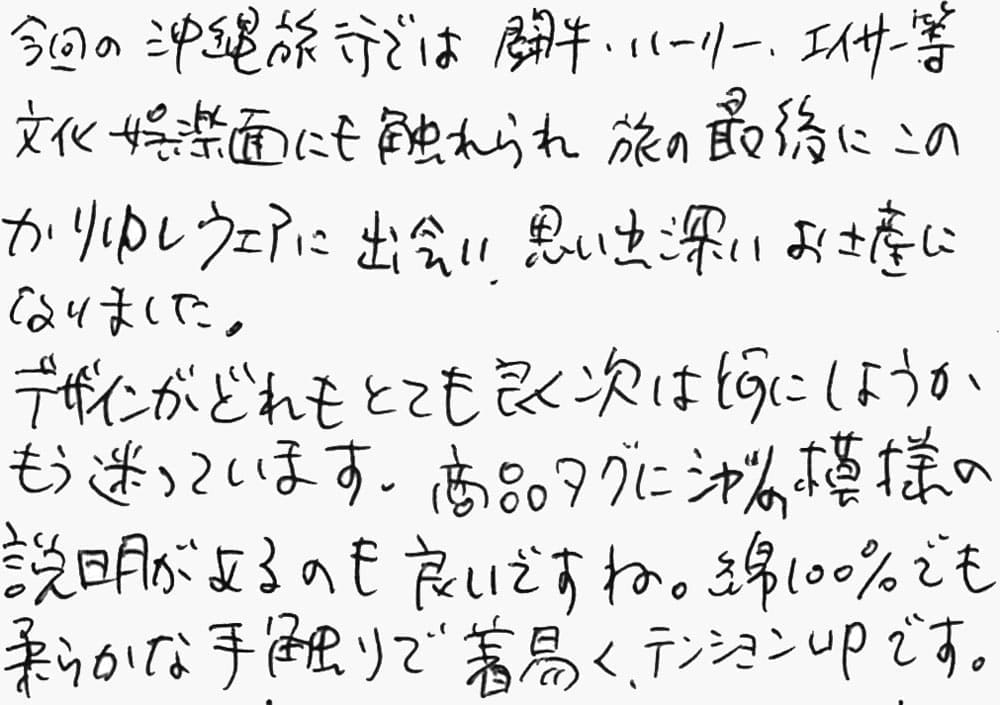 今回の沖縄旅行では 闘牛・ハーリー、エイサー等
文化娯楽面にも触れられ 旅の最後にこの
かりゆしウェアに出会い、思い出深いお土産に
なりました。
デザインがどれもとても良く次は何にしようか、
もう迷っています。商品タグに 模様の
説明があるのも良いですね。綿100%でも
柔らかな手触りで着易く、テンションUPです。